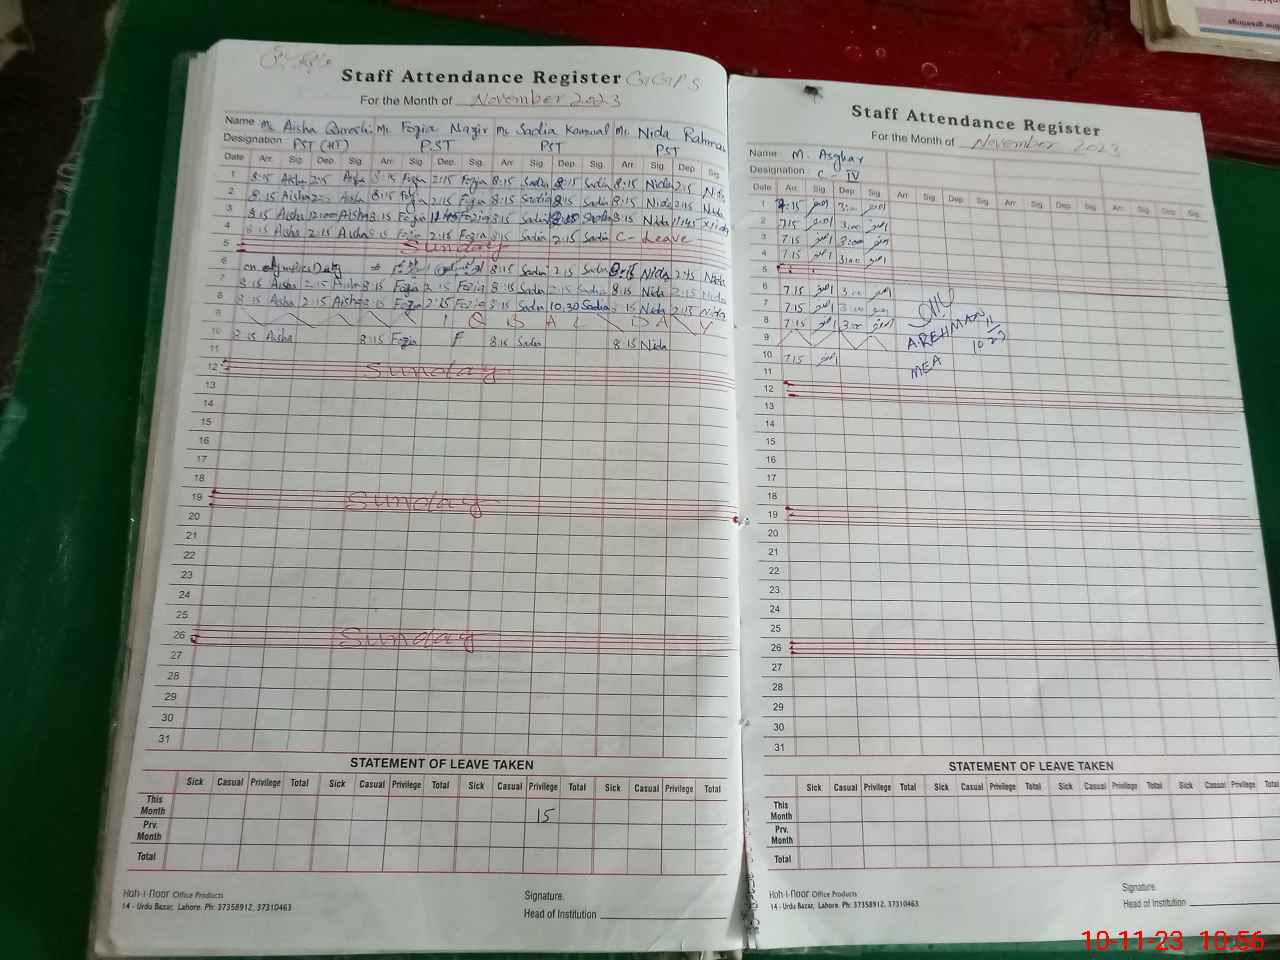 Staff Attendance Register GGPS
For the Month of November 2023
Name Ms Aisha Qureshi Ms Fozia Nazir Ms Sadia Kanwal Ms Nida Rahmat
Designation PST (HT) P.ST PST PST
Date Arr. Sig. Dep. Sig. Arr. Sig. Dep. Sig. Arr. Sig. Dep. Sig. Arr. Sig. Dep. Sig.
1 8:15 Aisha 2:15 Aisha 8:15 Fozia 2:15 Fozia 8:15 Sadia 2:15 Sadia 8:15 Nida 2:15 Nida
2 8:15 Aisha Aisha 8:15 Fozia 2:15 Fozia 8:15 Sadia 8:15 Sadia 8:15 Nida 2:15 Nida
3 8:15 Aisha 12:00 Aisha 8:15 Fozia Fozia 8:15 Sadia Sadia 8:15 Nida 11:45 Nida
4 8:15 Aisha 2:15 Aisha 8:15 Fozia 2:15 Fozia 8:15 Sadia 2:15 Sadia C- Leave
5 Sunday
6 on olympics Duty 8:15 Sadia 2:15 Sadia 8:15 Nida 2:15 Nida
7 8:15 Aisha 2:15 Aisha 8:15 Fozia 2:15 Fozia 8:15 Sadia 2:15 Sadia 8:15 Nida 2:15 Nida
8 8:15 Aisha 2:15 Aisha 8:15 Fozia 2:15 Fozia 8:15 Sadia 10:30 Sadia 8:15 Nida 2:15 Nida
9 I Q B A L D A Y
10 8:15 Aisha 8:15 Fozia F 8:15 Sadia 8:15 Nida
11
12 Sunday
13
14
15
16
17
18
19 Sunday
20
21
22
23
24
25
26 Sunday
27
28
29
30
31
STATEMENT OF LEAVE TAKEN
Sick Casual Privilege Total Sick Casual Privilege Total Sick Casual Privilege Total Sick Casual Privilege Total
This Month 15
Prv. Month
Total
Koh-i-Noor Office Products
14 - Urdu Bazar, Lahore. Ph: 37358912, 37310463
Signature.
Head of Institution
Staff Attendance Register
For the Month of November 2023
Name M. Asghar
Designation C-IV
Date Arr. Sig. Dep. Sig. Arr. Sig. Dep. Sig. Arr. Sig. Dep. Sig. Arr. Sig. Dep. Sig.
1 7:15 اصغر 3:00 اصغر
2 7:15 اصغر 3:00 اصغر
3 7:15 اصغر 3:00 اصغر
4 7:15 اصغر 3:00 اصغر
5
6 7:15 اصغر 3:00 اصغر
7 7:15 اصغر 3:00 اصغر
8 7:15 اصغر 3:00 اصغر
A.REHMAN
MEA
9
10 7:15 اصغر
11
12
13
14
15
16
17
18
19
20
21
22
23
24
25
26
27
28
29
30
31
STATEMENT OF LEAVE TAKEN
Sick Casual Privilege Total Sick Casual Privilege Total Sick Casual Privilege Total Sick Casual Privilege Total
This Month
Prv. Month
Total
Koh-i-Noor Office Products
14 - Urdu Bazar, Lahore. Ph: 37358912, 37310463
Signature.
Head of Institution
10-11-23 10:56